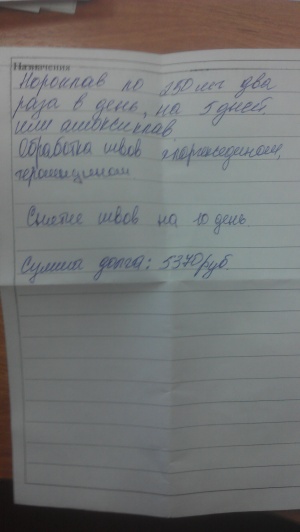 Назначения
Нороклав по 250 мг два
раза в день, на 5 дней,
или амоксиклав
Обработка швов хлоргекседином,
террамицином
Снятие швов на 10 день
Сумма долга: 5370руб.